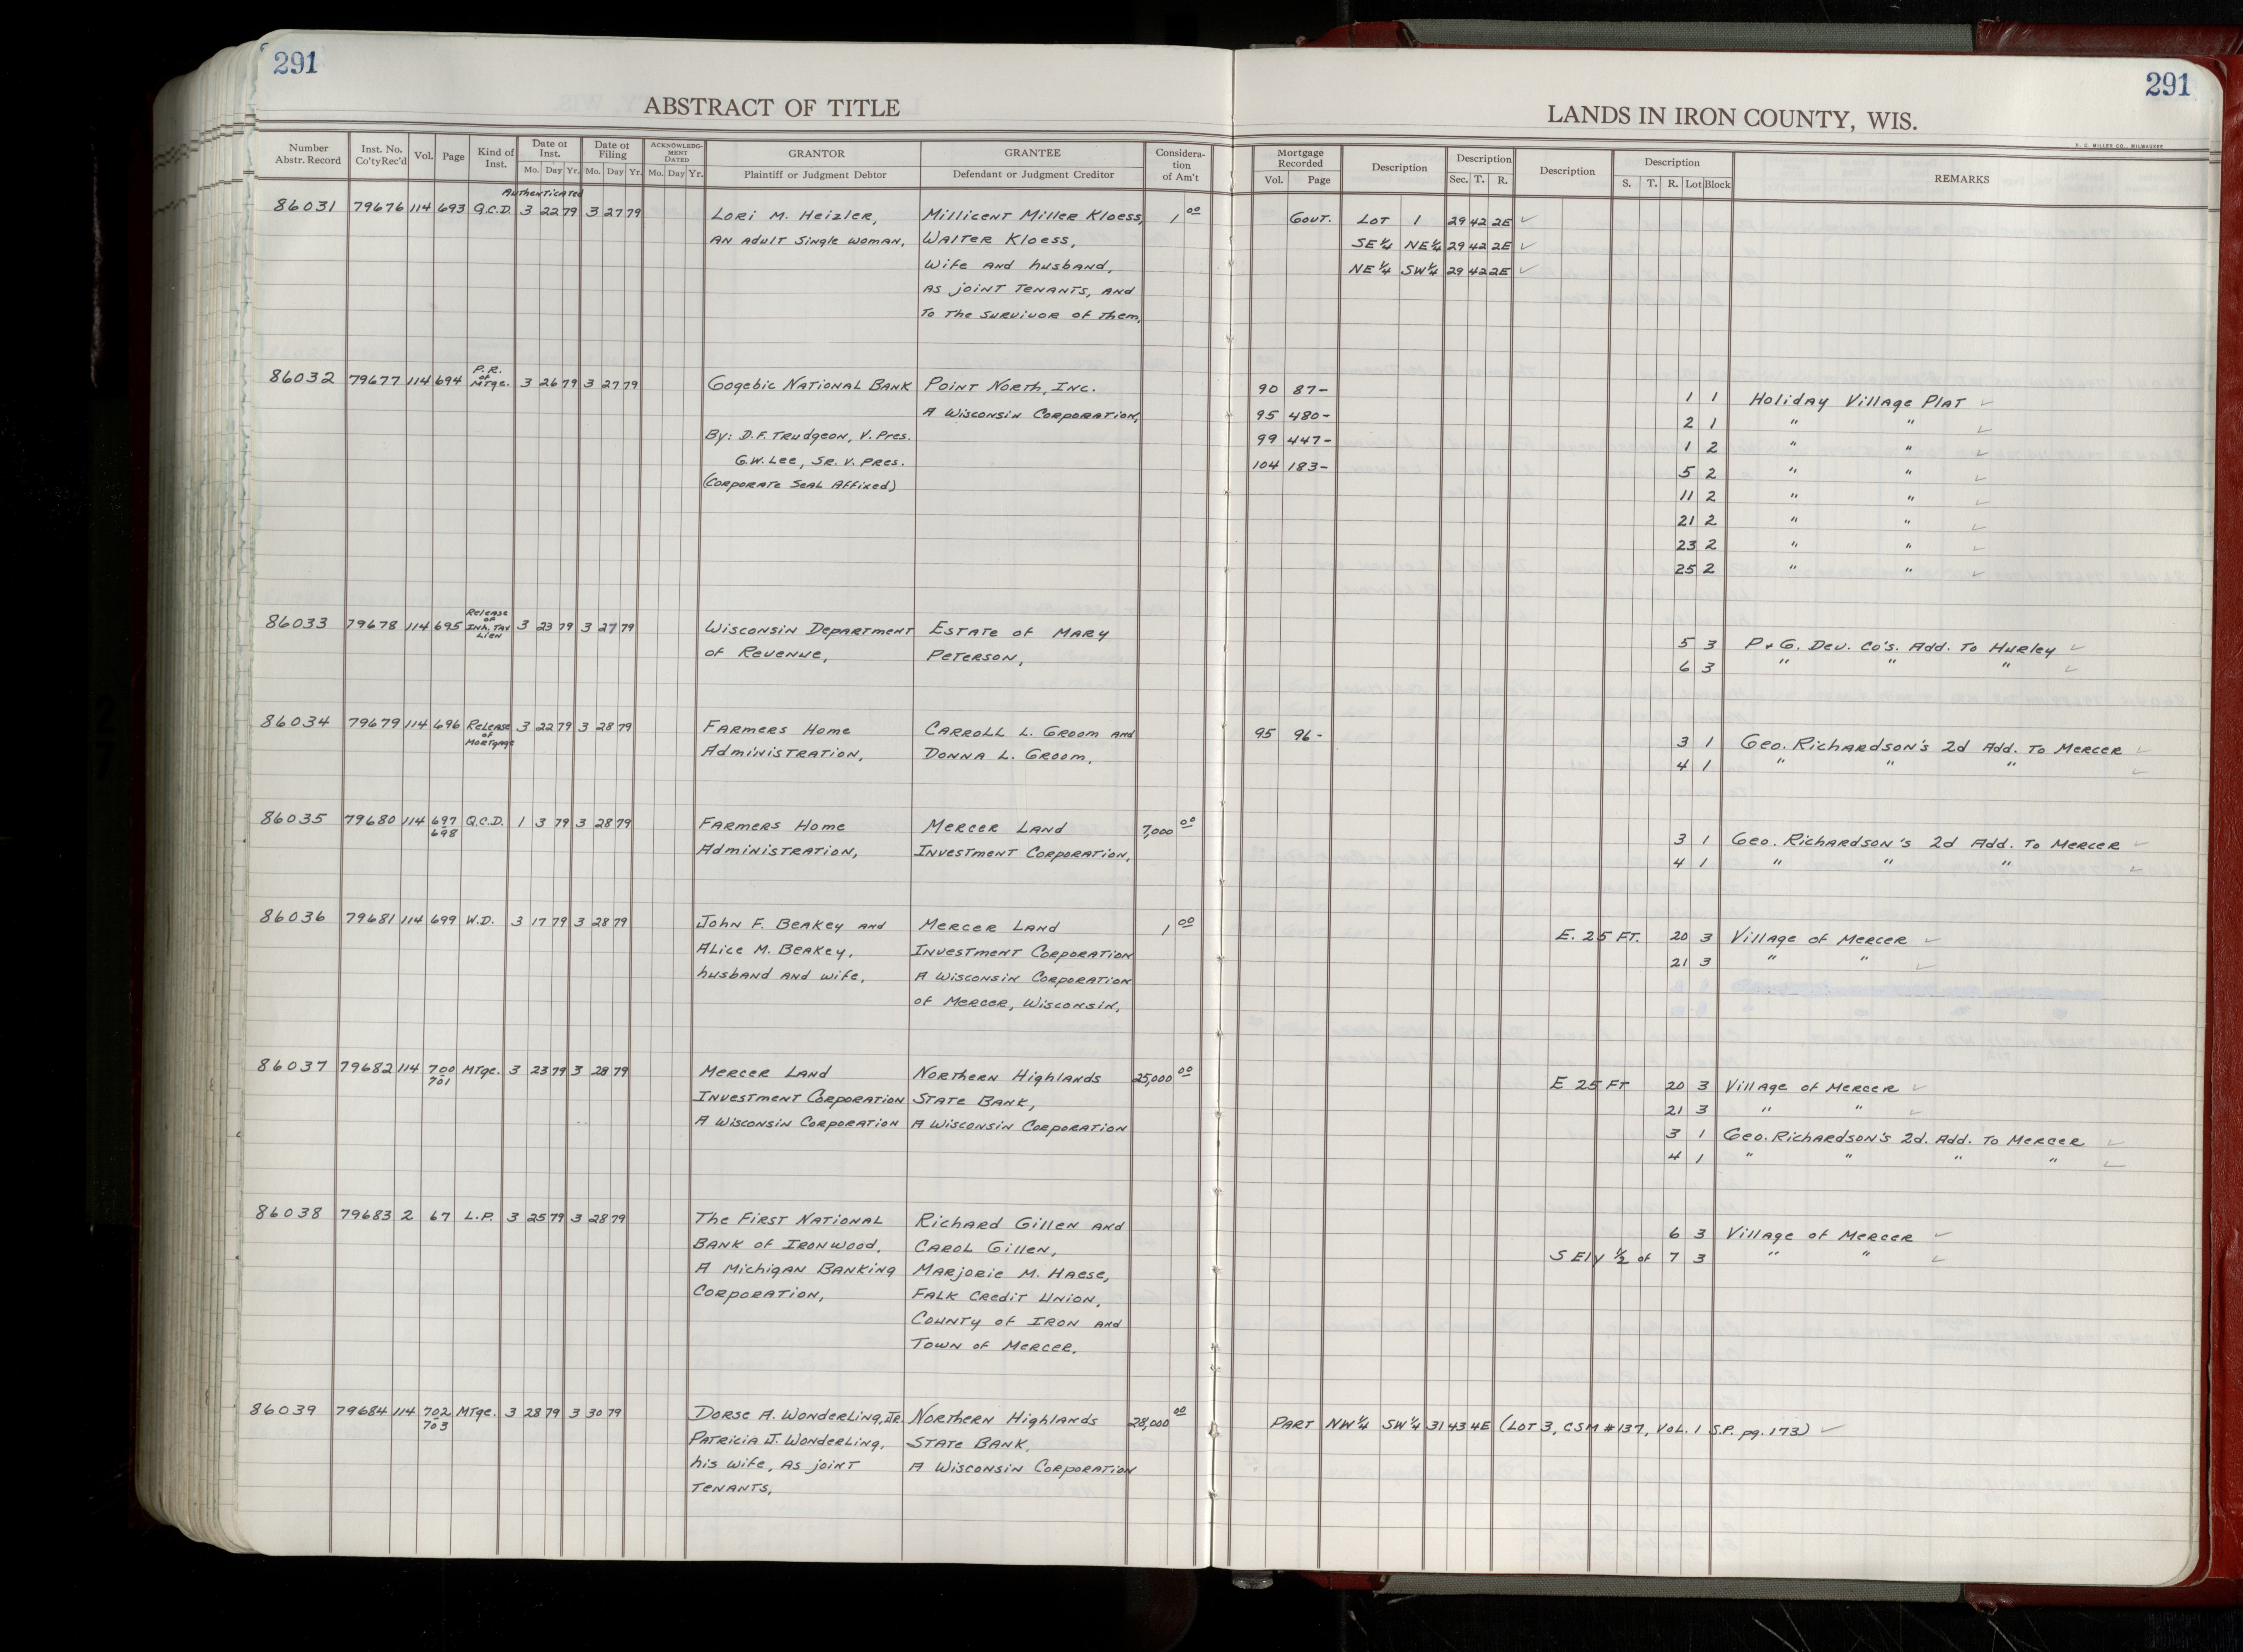 291
291
ABSTRACT OF TITLE
LANDS IN IRON COUNTY, WIS.
Number Abstr. Record | Inst. No. Co'ty Rec'd | Vol. | Page | Kind of Inst. | Date of Inst. Mo. Day Yr. | Date of Filing Mo. Day Yr. | ACKNOWLEDGMENT DATED Mo. Day Yr. | GRANTOR Plaintiff or Judgment Debtor | GRANTEE Defendant or Judgment Creditor | Consideration of Am't | Mortgage Recorded Vol. Page | Description | Description Sec. T. R. | Description | Description S. T. R. Lot Block | REMARKS
H. C. MILLER CO., MILWAUKEE
Authenticated
86031 79676 114 693 Q.C.D. 3 22 79 3 27 79 Lori M. Heizler, Millicent Miller Kloess, 1 00 Govt. Lot 1 29 42 2E ✓
an adult single woman, Walter Kloess, SE 1/4 NE 1/4 29 42 2E ✓
wife and husband, NE 1/4 SW 1/4 29 42 2E ✓
as joint tenants, and
to the survivor of them,
86032 79677 114 694 P.R. of Mtge. 3 26 79 3 27 79 Gogebic National Bank Point North, Inc. 90 87- 1 1 Holiday Village Plat ✓
A Wisconsin Corporation, 95 480- 2 1 " " ✓
By: D.F. Trudgeon, V. Pres. 99 447- 1 2 " " ✓
G.W. Lee, Sr. V. Pres. 104 183- 5 2 " " ✓
(Corporate Seal Affixed) 11 2 " " ✓
21 2 " " ✓
23 2 " " ✓
25 2 " " ✓
86033 79678 114 695 Release of Inh. Tax Lien 3 23 79 3 27 79 Wisconsin Department Estate of Mary 5 3 P & G. Dev. Co's. Add. to Hurley ✓
of Revenue, Peterson, 6 3 " " " ✓
86034 79679 114 696 Release of Mortgage 3 22 79 3 28 79 Farmers Home Carroll L. Groom and 95 96- 3 1 Geo. Richardson's 2d Add. to Mercer ✓
Administration, Donna L. Groom, 4 1 " " " ✓
86035 79680 114 697-698 Q.C.D. 1 3 79 3 28 79 Farmers Home Mercer Land 7,000 00 3 1 Geo. Richardson's 2d Add. to Mercer ✓
Administration, Investment Corporation, 4 1 " " " ✓
86036 79681 114 699 W.D. 3 17 79 3 28 79 John F. Beakey and Mercer Land 1 00 E. 25 Ft. 20 3 Village of Mercer ✓
Alice M. Beakey, Investment Corporation 21 3 " " ✓
husband and wife, A Wisconsin Corporation
of Mercer, Wisconsin,
86037 79682 114 700-701 Mtge. 3 23 79 3 28 79 Mercer Land Northern Highlands 25,000 00 E 25 Ft 20 3 Village of Mercer ✓
Investment Corporation State Bank, 21 3 " " ✓
A Wisconsin Corporation A Wisconsin Corporation 3 1 Geo. Richardson's 2d. Add. to Mercer ✓
4 1 " " " " ✓
86038 79683 2 67 L.P. 3 25 79 3 28 79 The First National Richard Gillen and 6 3 Village of Mercer ✓
Bank of Ironwood, Carol Gillen, S Ely 1/2 of 7 3 " " ✓
A Michigan Banking Marjorie M. Haese,
Corporation, Falk Credit Union,
County of Iron and
Town of Mercer,
86039 79684 114 702-703 Mtge. 3 28 79 3 30 79 Dorse A. Wonderling, Jr. Northern Highlands 28,000 00 Part NW 1/4 SW 1/4 31 43 4E (Lot 3, CSM #137, Vol. 1 S.P. pg. 173) ✓
Patricia J. Wonderling, State Bank,
his wife, as joint A Wisconsin Corporation
tenants,